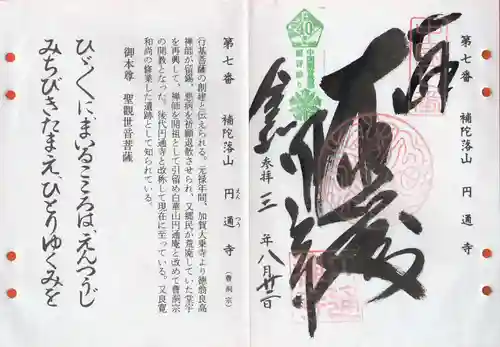 第七番 補陀落山 円通寺
参拝 三 年八月廿二日
奉
大悲殿
第七番 補陀落山 円通寺（曹洞宗）
えんつう
行基菩薩の創建と伝えられる。元禄年間、加賀大乗寺より徳翁良高
禅師が留錫、悪病を祈願退散させられ、又郷民が荒廃していた堂宇
を再興して、禅師を開祖として引留め白華山円通庵と改めて曹洞宗
の開教となった。後代円通寺と改称して現在に至っている。又良寛
和尚の修業した遺跡として知られている。
御本尊 聖觀世音菩薩
ひとくにまいるこころは、えんつうじ
みちびきたまえ、ひとりゆくみを